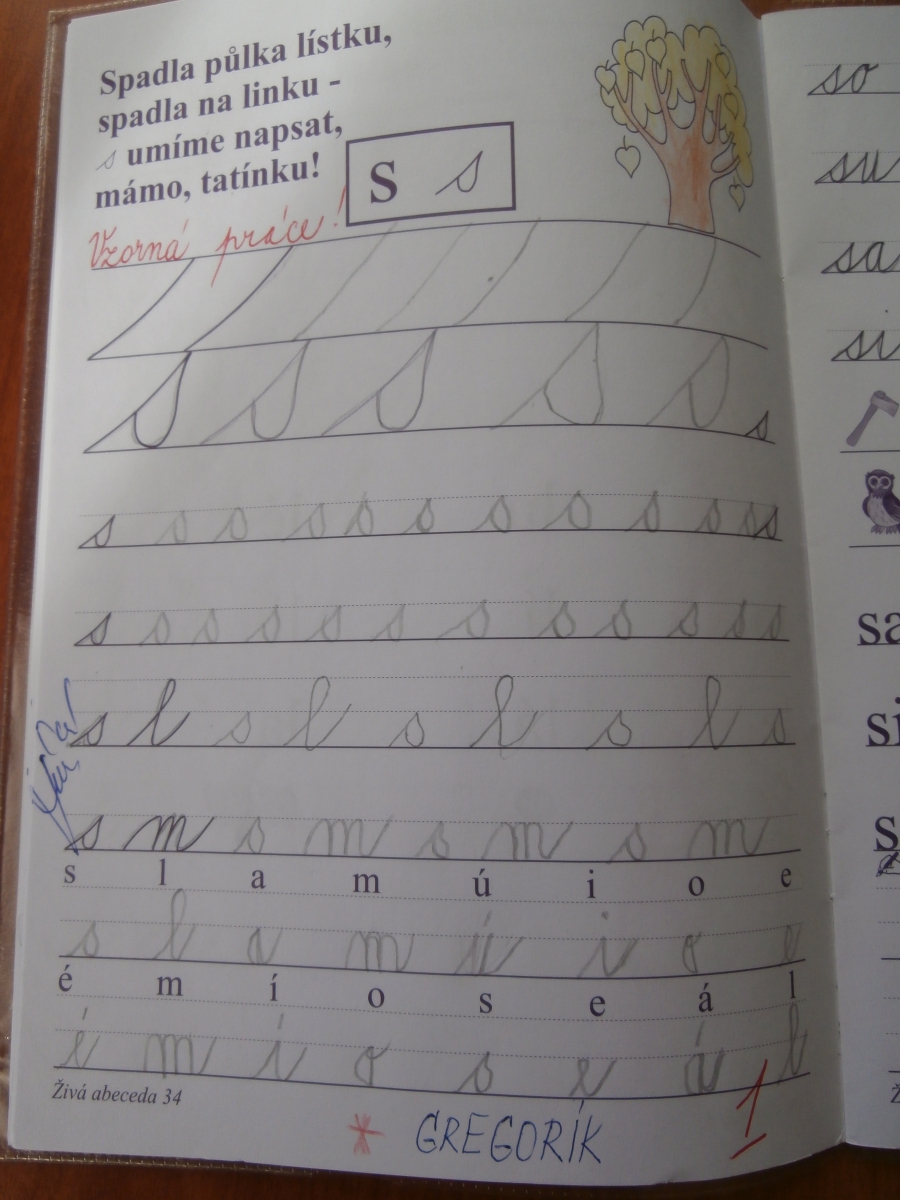 Spadla půlka lístku,
spadla na linku -
s umíme napsat,
mámo, tatínku!
S s
Vzorná práce!
s
s s s s s s s s s s s s
s s s s s s s s s s s s
s l s l s l s l s
s m s m s m s m
s l a m ú i o e
s l a m ú i o e
é m í o s e á l
é m í o s e á l
Živá abeceda 34
* GREGORÍK
1
so
su
sa
si
sa
si
s